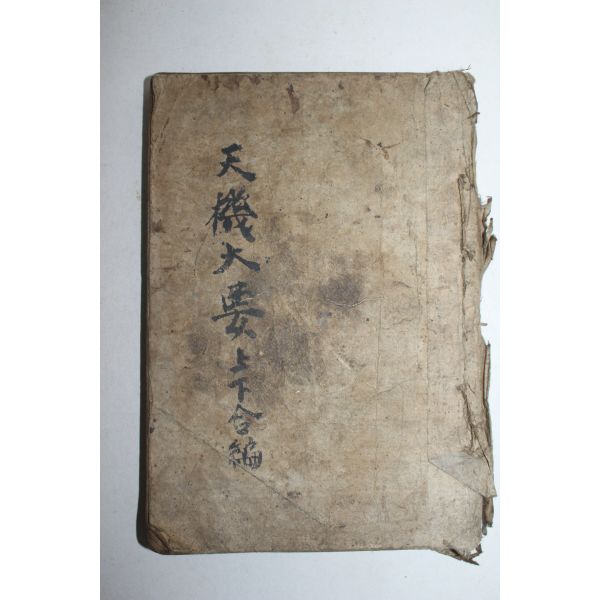 天機大要上下合編